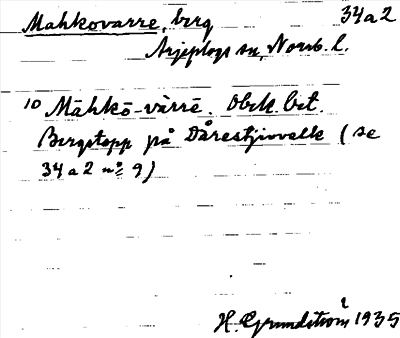 Mahkovarre, berg 34a2
Arjeplogs sn, Norrb. l.
10 Māhkō-vàrrē. Obek. bet.
Bergstopp på Dårestjivvalk (se
34a2 nº 9)
H. Grundström 1935